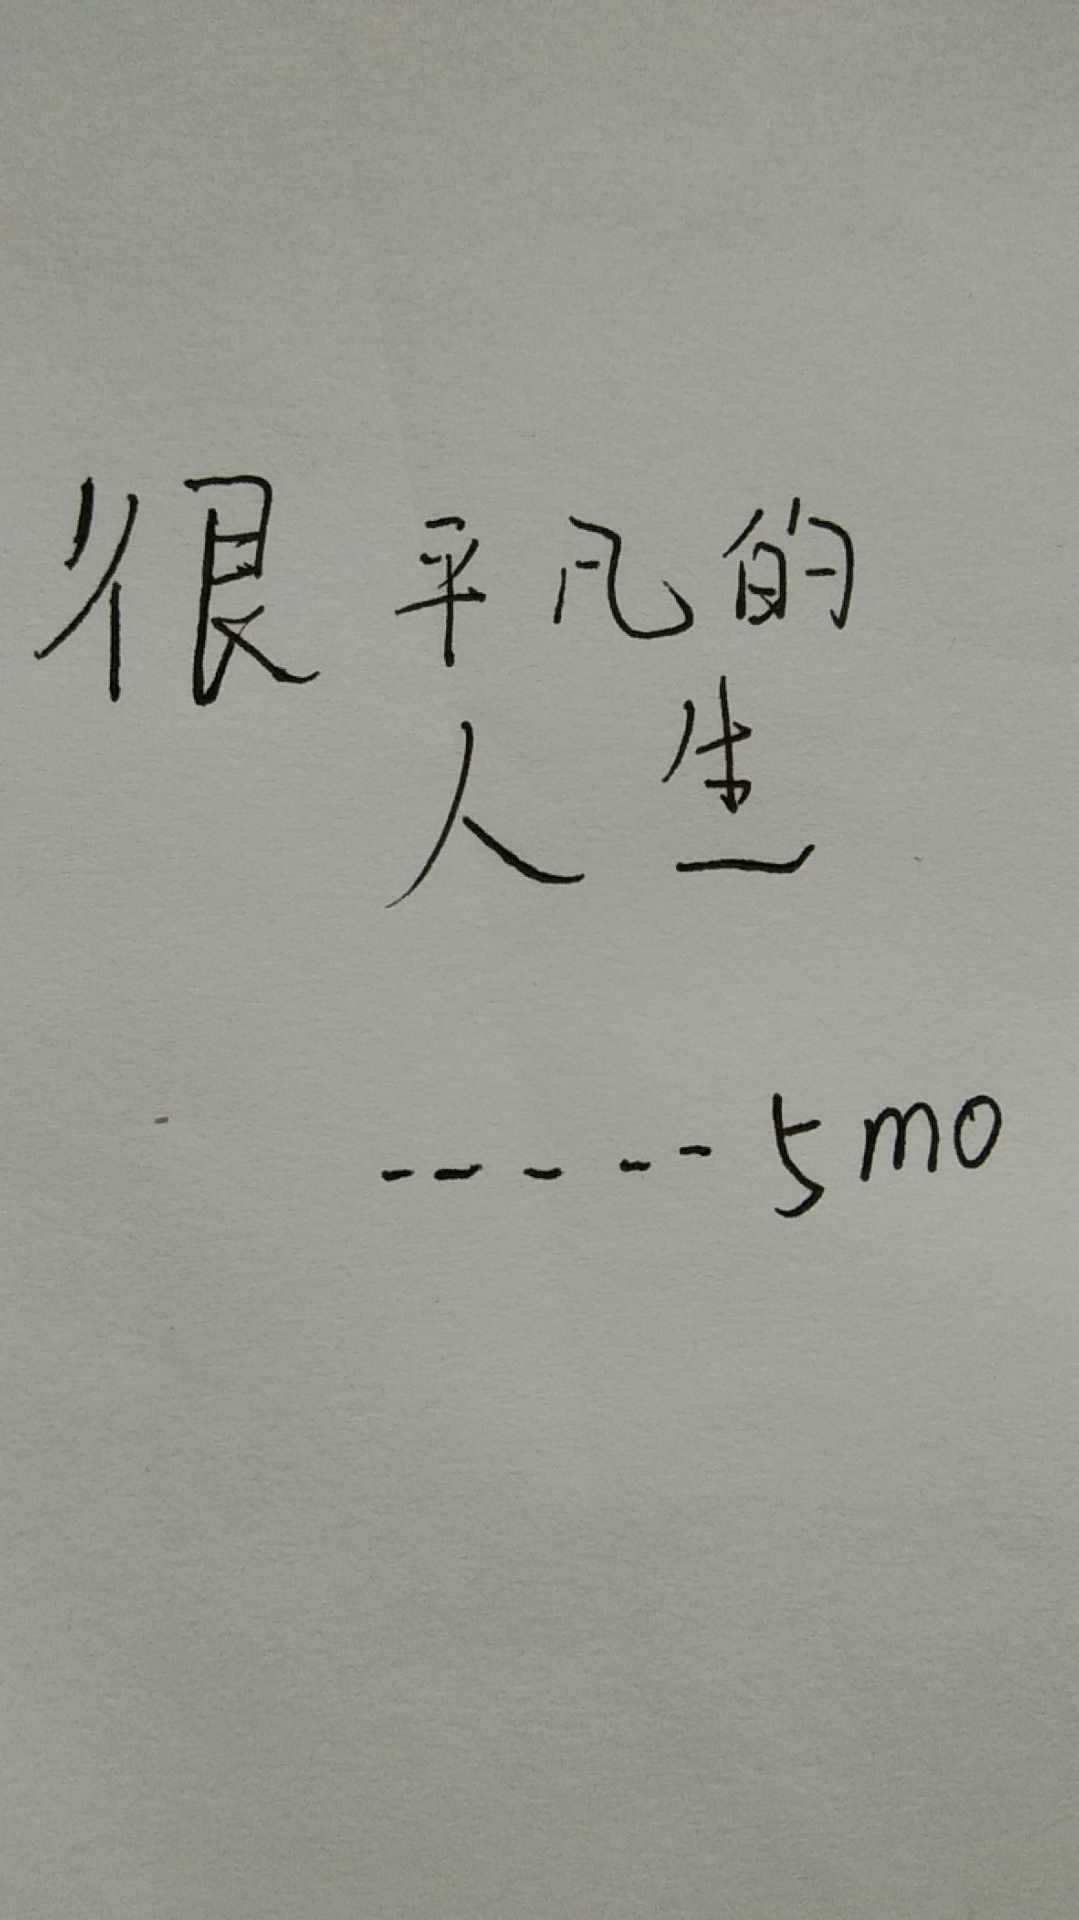 很平凡的
人生
-----5mo